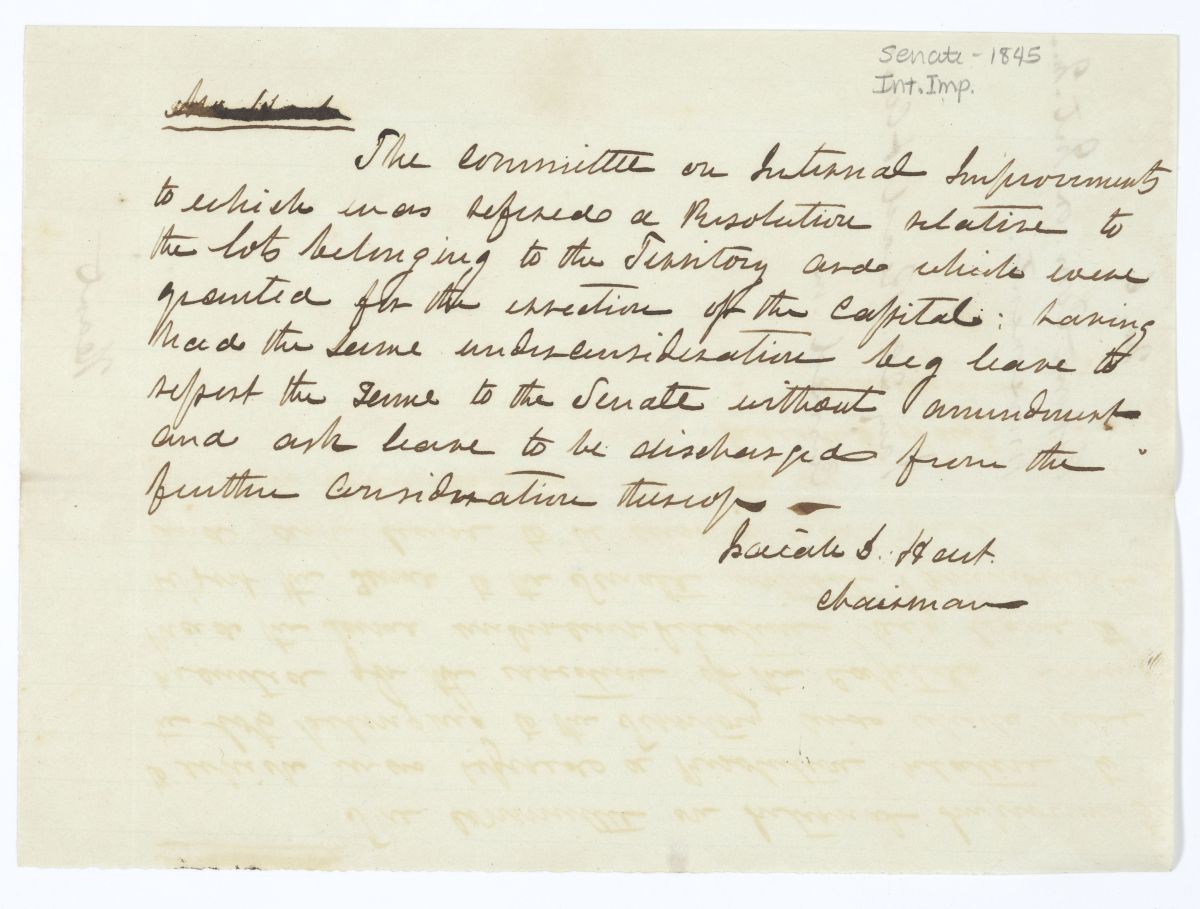 Senate - 1845
Int. Imp.
The Committee on Internal Improvements
to which was refered a Resolution relative to
the lots belonging to the Territory and which were
granted for the errection of the Capital: having
had the same under consideration beg leave to
report the same to the Senate without amendment
and ask leave to be discharged from the
further consideration thereof
Isaiah D. Hart.
Chairman